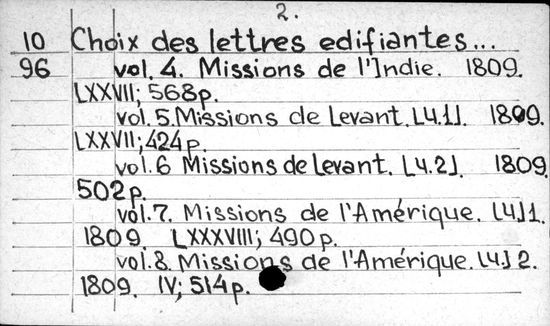 2.
10 Choix des lettres edifiantes...
96 vol. 4. Missions de l'Indie. 1809.
LXXVII; 568p.
vol. 5. Missions de Levant. [ч.1]. 1809.
LXXVII; 424p.
vol. 6 Missions de Levant. [ч.2]. 1809.
502p.
vol. 7. Missions de l'Amérique. [ч]1.
1809. LXXXVIII; 490p.
vol. 8. Missions de l'Amérique. [ч] 2.
1809. IV; 514p.